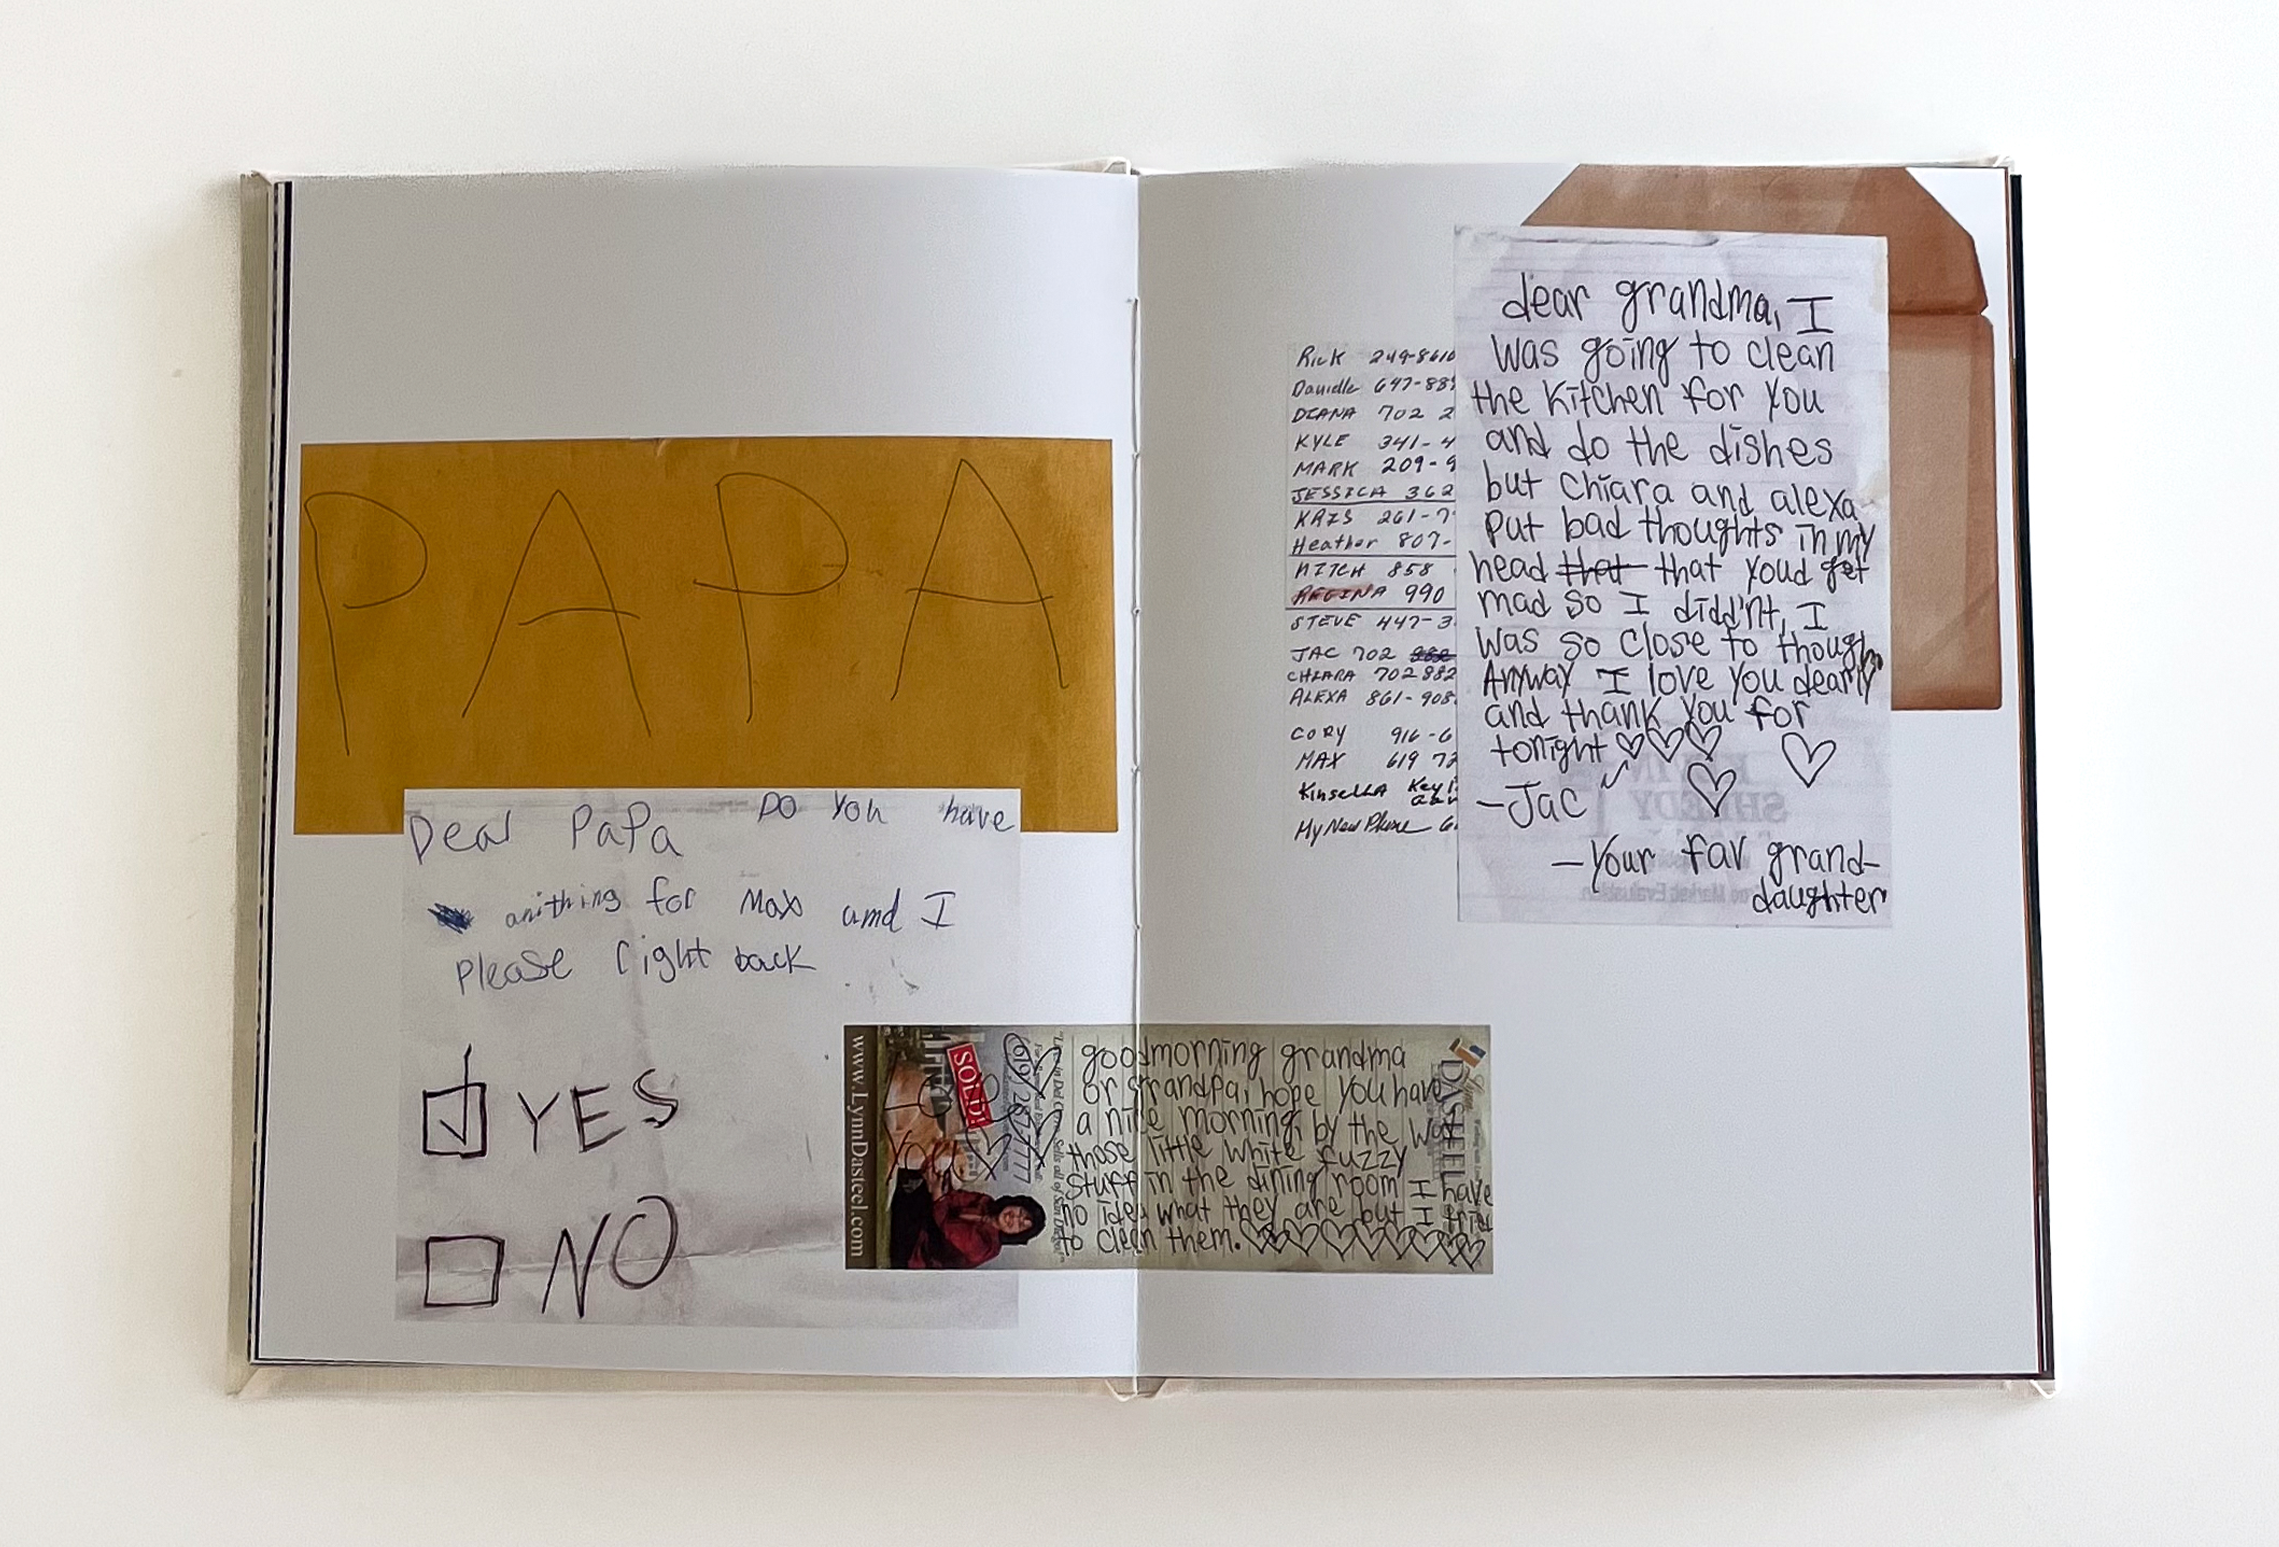 PAPA
Dear PaPa Do you have
anithing for Max amd I
Please right back
YES
NO
Rick 249-8610
Danielle 647-88
DIANA 702 2
KYLE 341-4
MARK 209-9
JESSICA 362
KRIS 261-7
Heather 807-
MITCH 858
REGINA 990
STEVE 447-3
JAC 702
CHIARA 702 882
ALEXA 861-908
CORY 916-6
MAX 619 72
Kinsella Key
My New Phone 6
dear grandma, I
was going to clean
the kitchen for you
and do the dishes
but chiara and alexa
put bad thoughts in my
head that that youd get
mad so I didd'nt, I
was so close to though
Anyway I love you dearly
and thank you for
tonight
-Jac
-Your fav grand-
daughter
www.LynnDasteel.com
SOLD!
Love
You
DASTEEL
goodmorning grandma
or grandpa, hope you have
a nice morning, by the way
those little white fuzzy
stuff in the dining room I have
no idea what they are but I tried
to clean them.